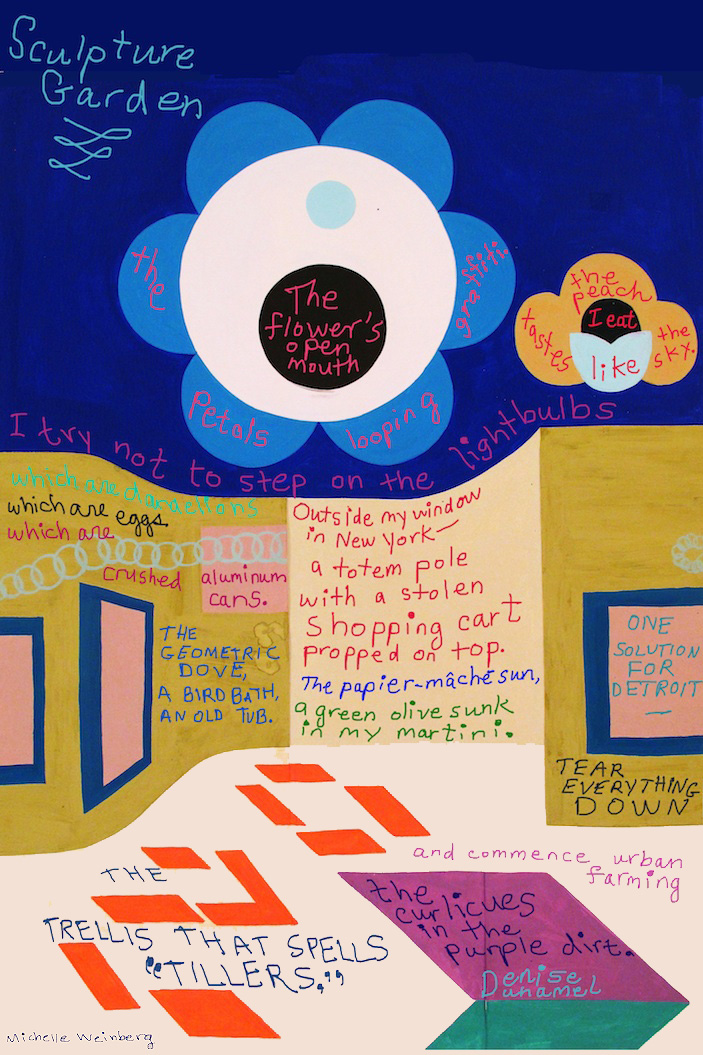 Sculpture
Garden
The
flower's
open
mouth
the
graffiti
Petals
looping
the
peach
I eat
tastes
like
the
sky.
I try not to step on the lightbulbs
which are dandelions
which are eggs
which are
crushed aluminum
cans.
THE
GEOMETRIC
DOVE,
A BIRD BATH,
AN OLD TUB.
Outside my window
in New York—
a totem pole
with a stolen
shopping cart
propped on top.
The papier-mâché sun,
a green olive sunk
in my martini.
ONE
SOLUTION
FOR
DETROIT
—
TEAR
EVERYTHING
DOWN
and commence urban
farming
the
curlicues
in the
purple dirt.
THE
TRELLIS THAT SPELLS
"TILLERS."
Denise
Duhamel
Michelle Weinberg